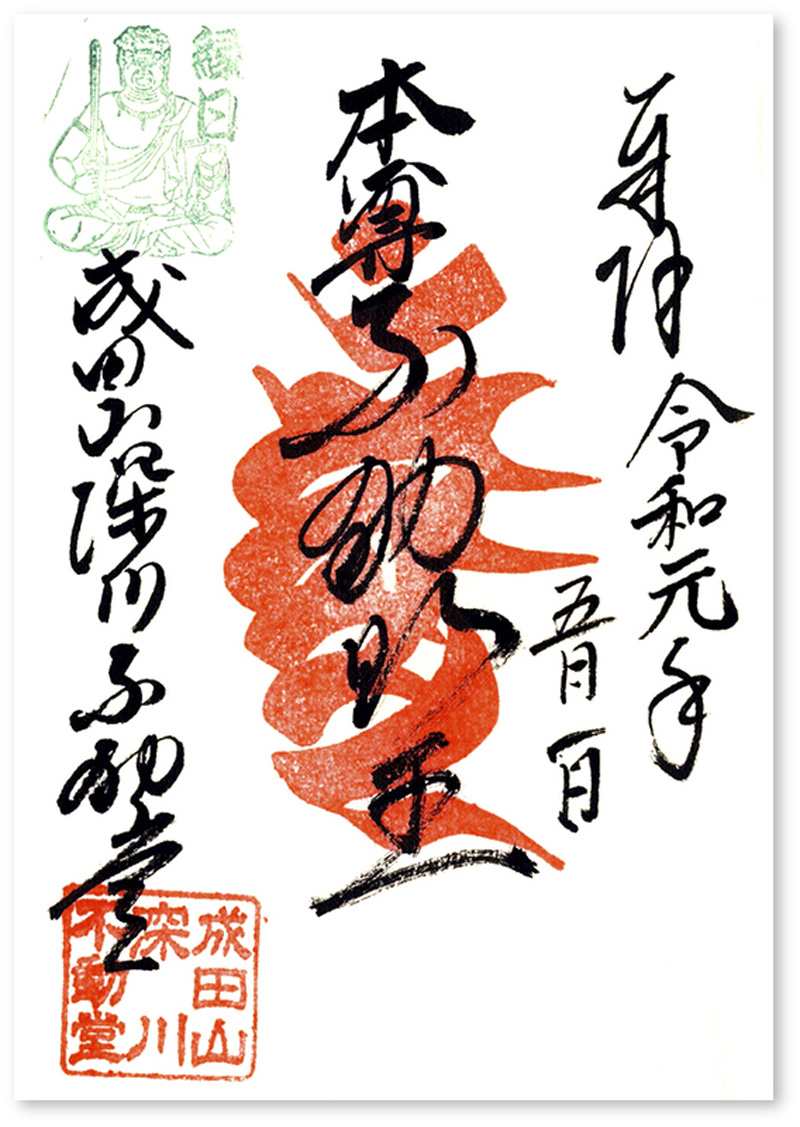 奉拝
令和元年
五月一日
本尊不動明王
縁日
成田山深川不動堂
成田山
深川
不動堂